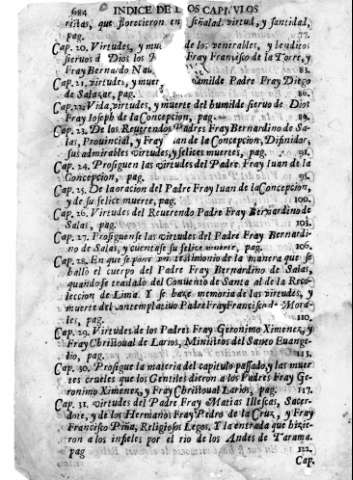 684 INDICE DE LOS CAPITVLOS
ristas, que florecieron en señalad. virtud, y santidad,
pag. 77.
Cap. 20. Virtudes, y mue de los venerables, y benditos
siervos d Dios los Fray Francisco de la Torre, y
Fray Bernardo Nau 83.
Cap. 21. virtudes, y muer umilde Padre Fray Diego
de Salazar, pag. 86.
Cap. 22. Vida, virtudes, y muerte del humilde siervo de Dios
Fray Ioseph de la Concepcion, pag. 89.
Cap. 23. De los Reverendos Padres Fray Bernardino de Sa-
las, Provincial, y Fray Iuan de la Concepcion, Difinidor,
sus admirables virtudes, y felices muertes, pag. 91.
Cap. 24. Prosiguese las virtudes del Padre Fray Iuan de la
Concepcion, pag. 95.
Cap. 25. De la oracion del Padre Fray Iuan de la Concepcion,
y de su felice muerte, pag. 100.
Cap. 26. Virtudes del Reverendo Padre Fray Bernardino de
Salas, pag. 103.
Cap. 27. Prosiguense las virtudes del Padre Fray Bernardi-
no de Salas, y cuentase su felice muerte, pag. 106.
Cap. 28. En que se pone un testimonio de la manera que se
hallò el cuerpo del Padre Fray Bernardino de Salas,
quando se traslado del Convento de Santa al de la Reco-
leccion de Lima. Y se haze memoria de las virtudes, y
muerte del contemplativo Padre Fray Francisco de Mora-
les, pag. 110.
Cap. 29. Virtudes de los Padres Fray Geronimo Ximenez, y
Fray Christoual de Larios, Ministros del Santo Euange-
lio, pag. 113.
Cap. 30. Prosigue la materia del capitulo passado, y las muer
tes crueles que los Gentiles dieron a los Padres Fray Ge-
ronimo Ximenez, y Fray Christoual Larios, pag. 117.
Cap. 31. virtudes del Padre Fray Matias Illescas, Sacer-
dote, y de los Hermanos Fray Pedro de la Cruz, y Fray
Francisco Piña, Religiosos Legos. Y la entrada que hizie-
ron a los infieles por el rio de los Andes de Tarama.
pag 122.
Cap.